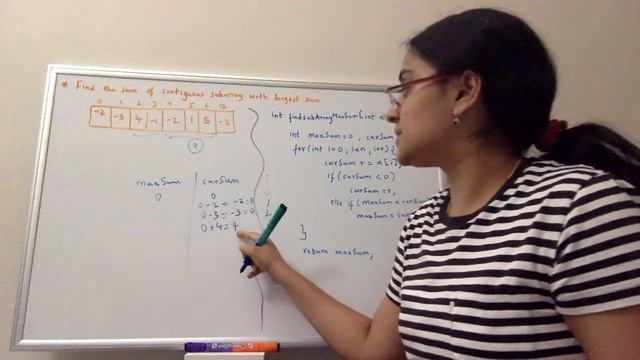 * Find the sum of contiguous subarray with largest sum
0 1 2 3 4 5 6 7
-2 -3 4 -1 -2 1 5 -3
7
maxSum curSum
0 0
0-2 = -2 = 0
0-3 = -3 = 0
0+4 = 4
0
1
2
int findsubArrayMaxSum(int a
int maxSum=0, curSum
for(int i=0, i<n, i++){
curSum += a[i]
if(curSum<0)
curSum=0,
else if(maxSum<curSum
maxSum = cur
}
return maxSum,